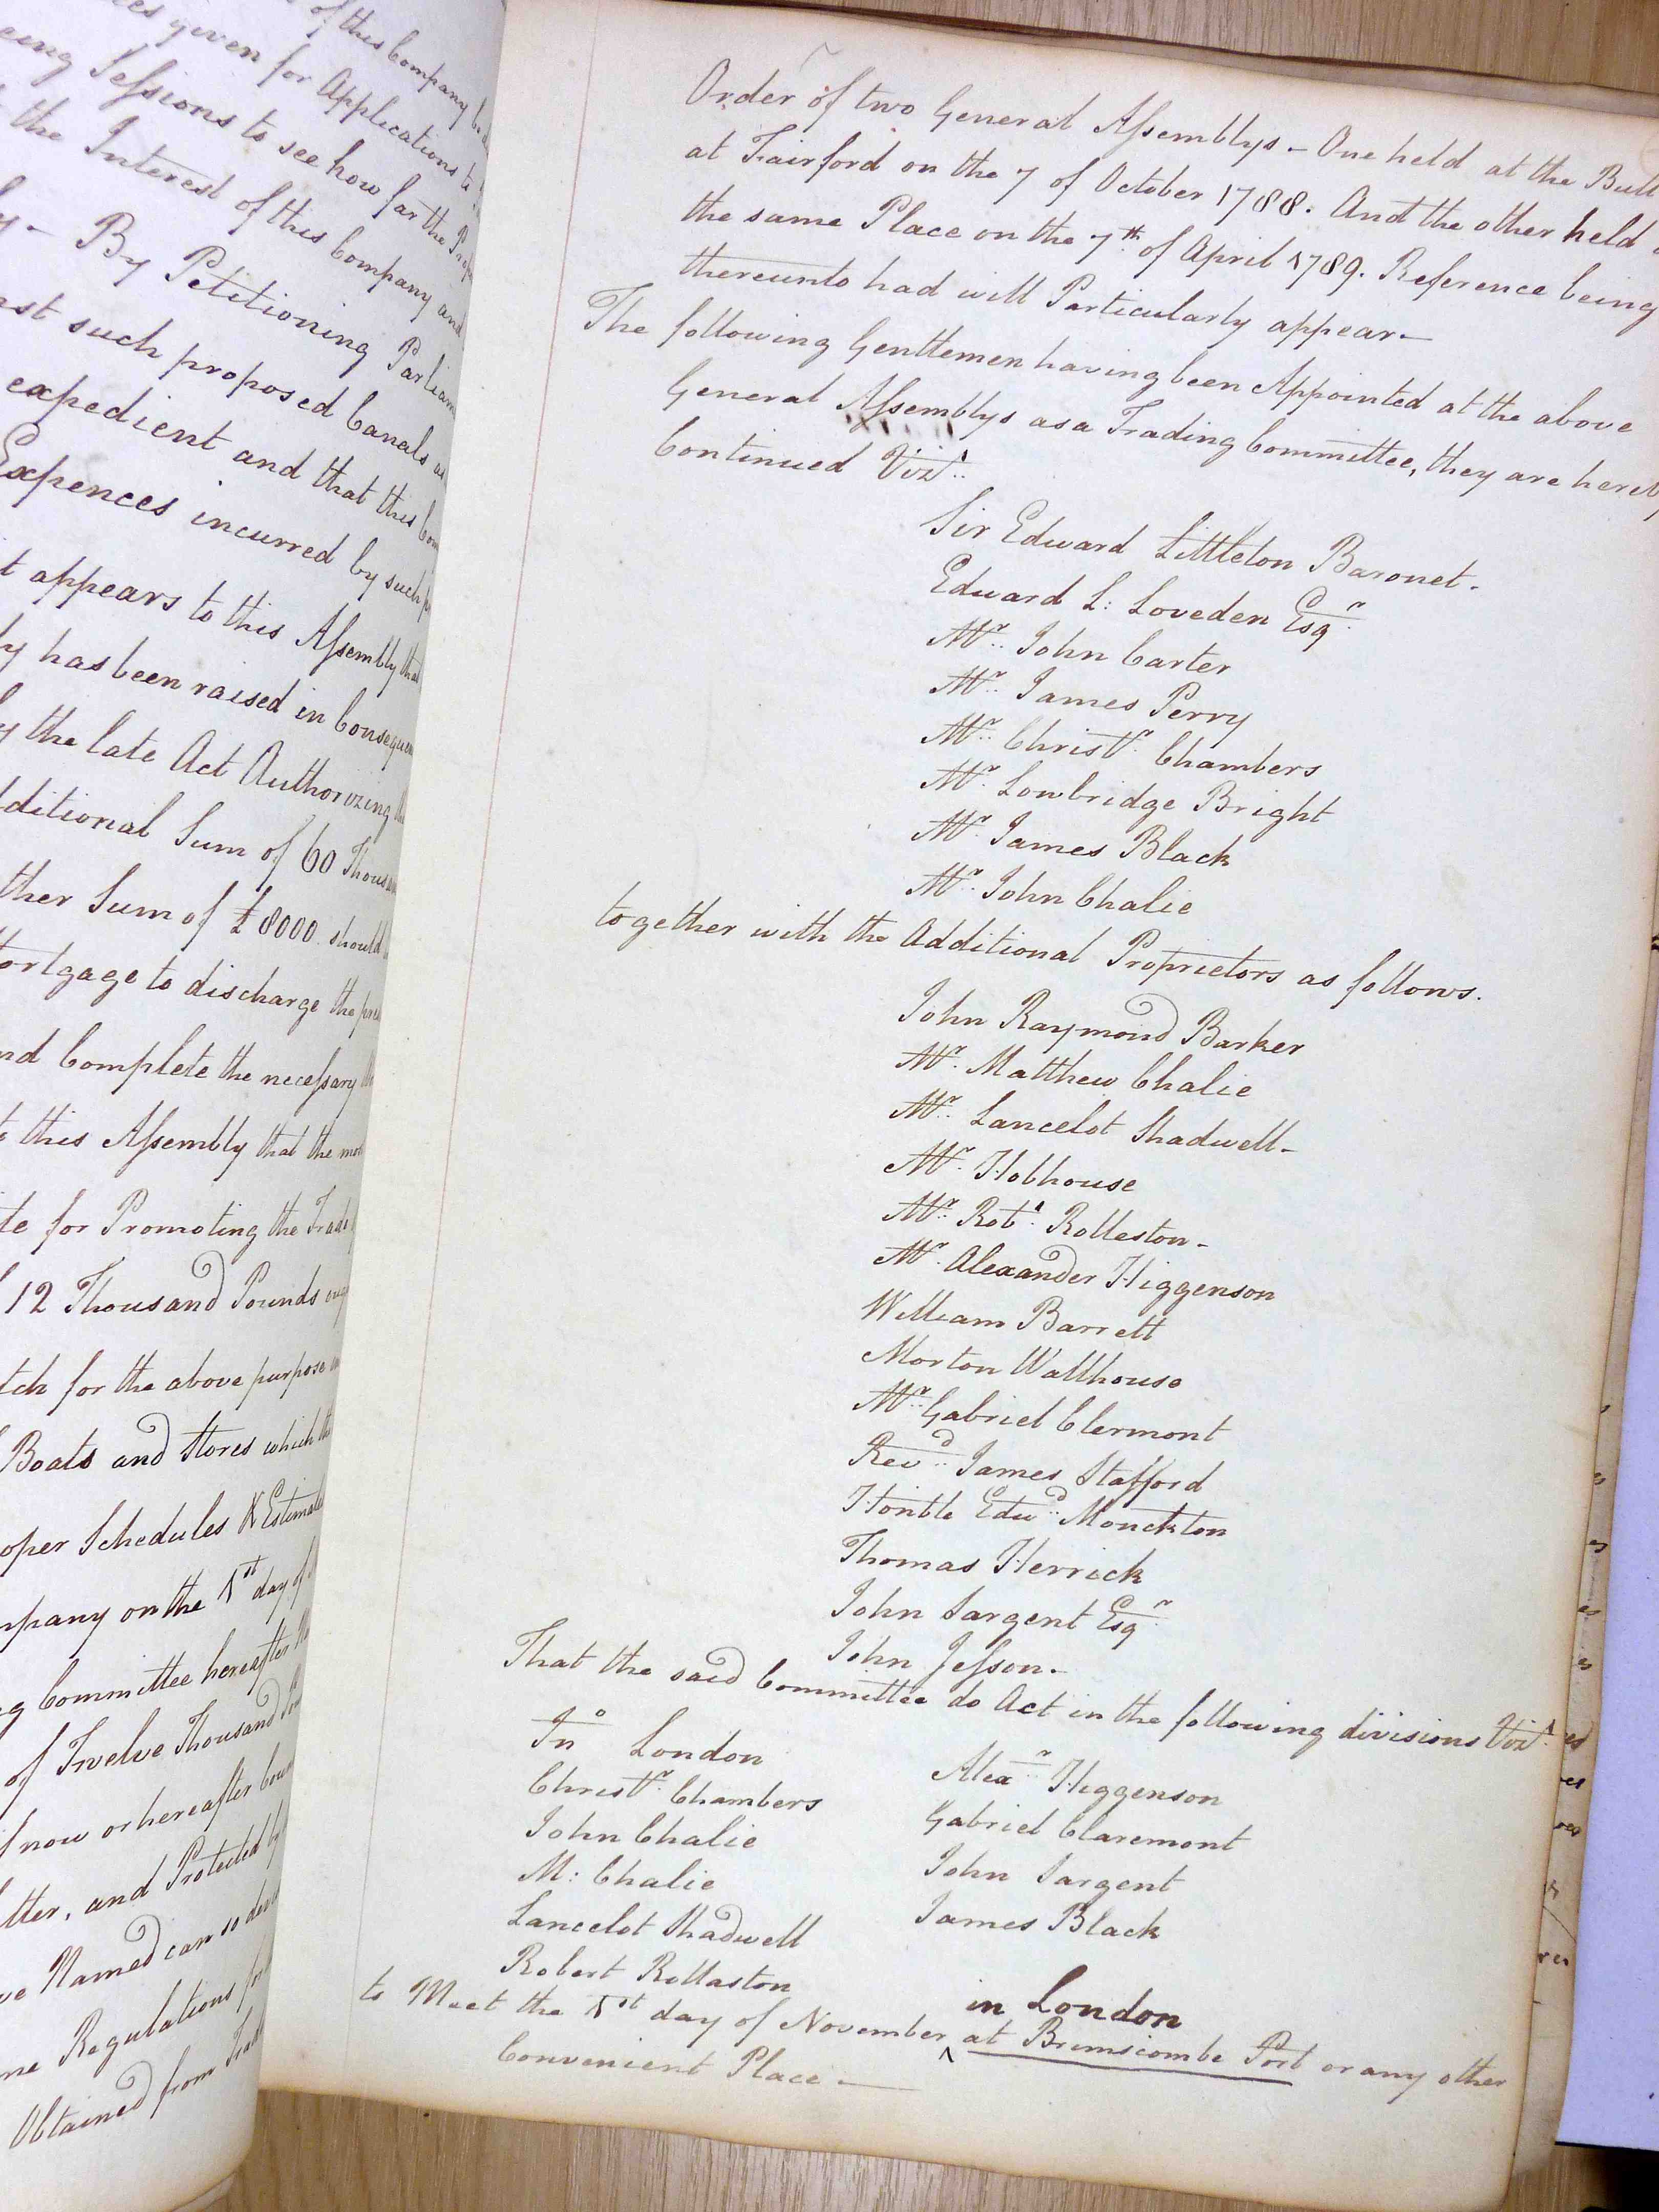 of this Company
given for Applications to
Sessions to see how far the
the Interest of this Company and
By Petitioning
such proposed Canals as
expedient and that this
Expences incurred by such
appears to this Assembly that
has been raised in
the late Act Authorizing
Sum of 60
Sum of £8000 should
to discharge the
Complete the necessary
this Assembly that the
for Promoting the Trade
12 Thousand Pounds
for the above purpose
Boats and Stores which the
Schedules & Estimates
on the 1st day of
Committee hereafter
of Twelve Thousand
now or hereafter
and Protected by
Named can so
Regulations for
Obtained from
Order of two General Assemblys – One held at the Bull
at Fairford on the 7 of October 1788. And the other held
the same Place on the 7th of April 1789. Reference being
thereunto had will Particularly appear –
The following Genttemen having been Appointed at the above
General Assemblys as a Trading Committee, they are hereby
Continued Vizt.
Sir Edward Littleton Baronet.
Edward L: Loveden Esqr.
Mr. John Carter
Mr. James Perry
Mr. Christr. Chambers
Mr. Lowbridge Bright
Mr. James Black
Mr. John Chalie
together with the Additional Proprietors as follows.
John Raymond Barker
Mr. Matthew Chalie
Mr. Lancelot Shadwell –
Mr. Hobhouse
Mr. Robt. Rolleston –
Mr. Alexander Higgenson
William Barrett
Morton Wallhouse
Mr. Gabriel Clermont
Revd. James Stafford
Honble Edwd. Monckton
Thomas Herrick
John Sargent Esqr.
John Jesson –
That the said Committee do Act in the following divisions Vizt.
In London
Christr. Chambers
John Chalie
M: Chalie
Lancelot Shadwell
Robert Rollaston
Alexr. Higgenson
Gabriel Claremont
John Sargent
James Black
in London
to Meet the 1st day of November ^ at Brimscombe Port or any other
Convenient Place –